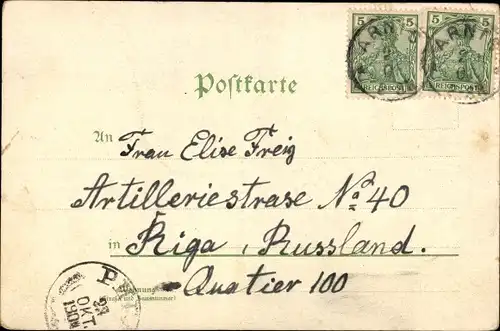 5 5 5 5
REICHSPOST REICHSPOST
Postkarte
An Frau Elise Freig
Artilleriestrase No 40
in Riga, Russland.
Wohnung
(Straße und Hausnummer)
Quatier 100
OKT.